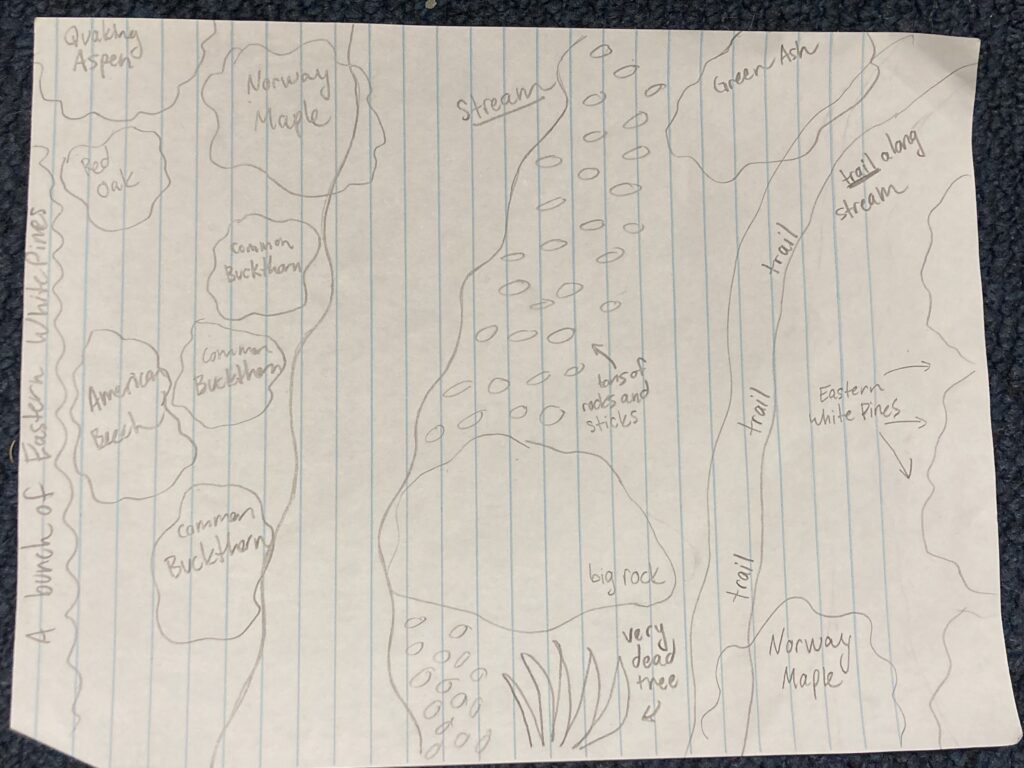 Quaking
Aspen
Norway
Maple
Stream
Green Ash
Red
Oak
trail along
stream
A bunch of Eastern White Pines
common
Buckthorn
trail
American
Beech
common
Buckthorn
tons of
rocks and
sticks
trail
Eastern
White Pines
common
Buckthorn
big rock
trail
very
dead
tree
Norway
Maple